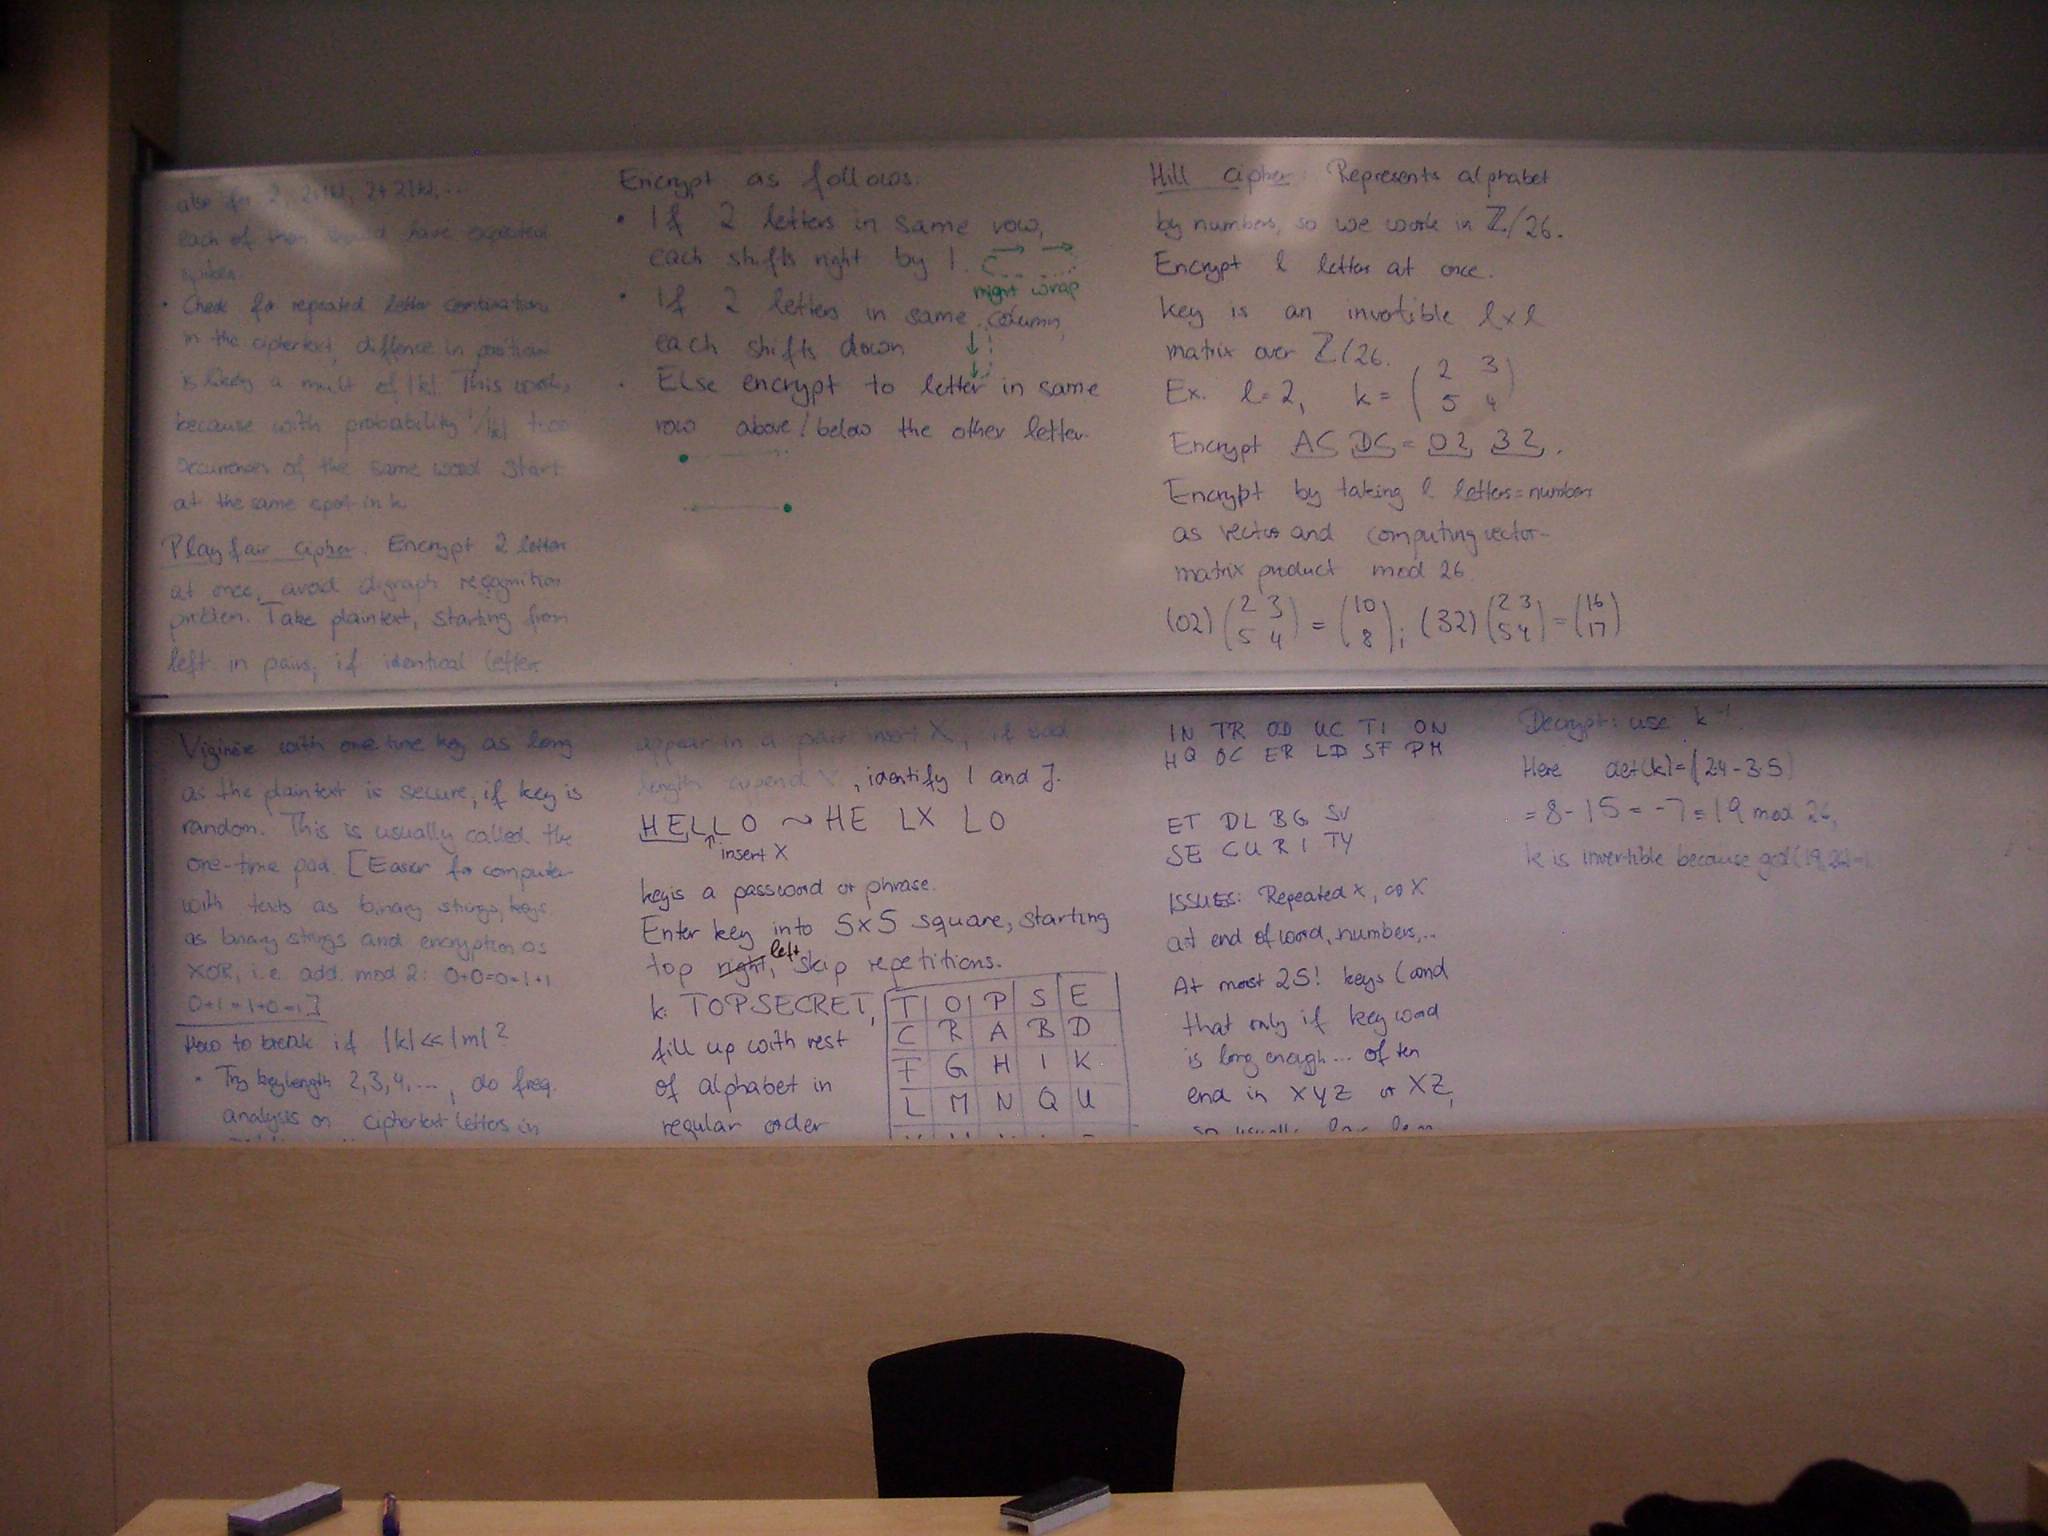 also for 2, 2+|k|, 2+2|k|, ...
each of them should have expected
spikes
• Check for repeated letter combination
in the ciphertext, diffence in position
is likely a mult of |k|. This works,
because with probability 1/|k| two
occurrences of the same word start
at the same spot in k.
Playfair cipher: Encrypt 2 letters
at once, avoid digraph recognition
problem. Take plaintext, starting from
left in pairs; if identical letters
Encrypt as follows:
• If 2 letters in same row,
each shifts right by 1.
right wrap
• If 2 letters in same column,
each shifts down
• Else encrypt to letter in same
row above/below the other letter.
Hill cipher: Represents alphabet
by numbers, so we work in ℤ/26.
Encrypt l letters at once.
key is an invertible l×l
matrix over ℤ/26.
Ex. l=2, k = (2 3
5 4)
Encrypt AC DC = 02, 32.
Encrypt by taking l letters=numbers
as vector and computing vector-
matrix product mod 26
(02) (2 3 5 4) = (10 8); (32) (2 3 5 4) = (16 17)
Viginère with one-time key as long
as the plaintext is secure, if key is
random. This is usually called the
one-time pad. [Easier for computer
with texts as binary strings, keys
as binary strings and encryption as
XOR, i.e. add. mod 2: 0+0=0=1+1
0+1=1+0=1]
How to break if |k|<<|m|?
• Try keylength 2,3,4,..., do freq.
analysis on ciphertext letters in
appear in a pair insert X, if odd
length append X, identify I and J.
HELLO ~> HE LX LO
insert X
key is a password or phrase.
Enter key into 5x5 square, starting
top right, left skip repetitions.
k: TOPSECRET,
fill up with rest
of alphabet in
regular order
T O P S E
C R A B D
F G H I K
L M N Q U
IN TR OD UC TI ON
HQ OC ER LD SF PM
ET DL BG SV
SE CU RI TY
ISSUES: Repeated x, or X
at end of word, numbers,...
At most 25! keys (and
that only if keyword
is long enough... often
end in XYZ or XZ,
so usually
Decrypt: use k⁻¹
Here det(k)=(2·4-3·5)
= 8-15 = -7 ≡ 19 mod 26,
k is invertible because gcd(19,26)=1